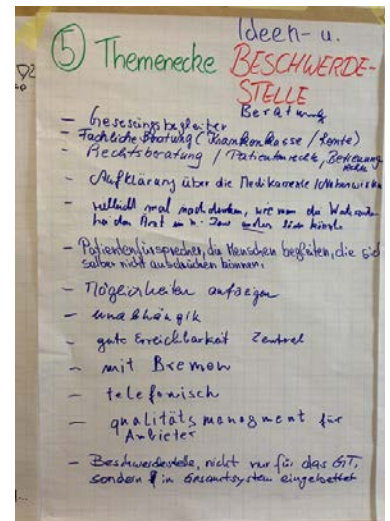 Ideen- u.
⑤ Themenecke BESCHWERDE-
STELLE
Beratung
- Genesungsbegleiter
- Fachliche Beratung (Krankenkasse / Rente)
- Rechtsberatung / Patientenrechte, Betreuung
- Aufklärung über die Medikamente / Nebenwirk
- vielleicht mal nachdenken, wie man die
bei den Arzt
- Patientenfürsprecher, die Menschen begleiten, die sich
selber nicht ausdrücken können.
- Möglichkeiten aufzeigen
- unabhängik
- gute Erreichbarkeit Zentral
- mit Bremen
- telefonisch
- qualitätsmanagment für
Anbieter
- Beschwerdestelle, nicht nur für das GT,
sondern in Gesamtsystem eingebettet